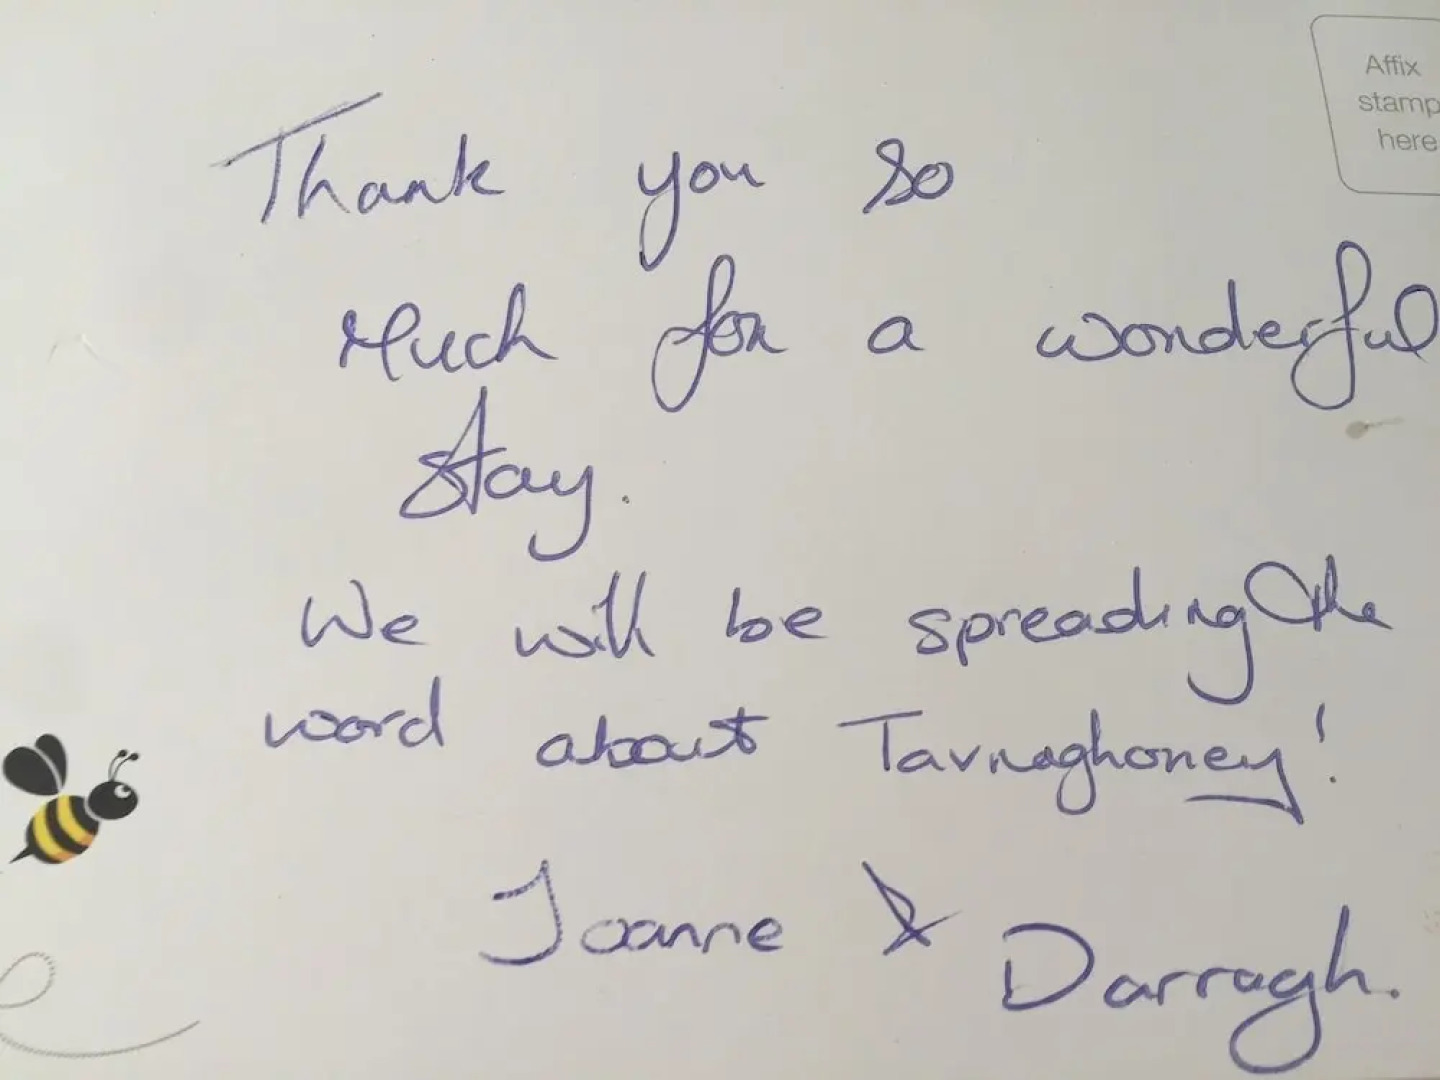 Affix
stamp
here
Thank you so
Much for a wonderful
stay.
We will be spreading the
word about Tavnaghoney!
Joanne & Darragh.